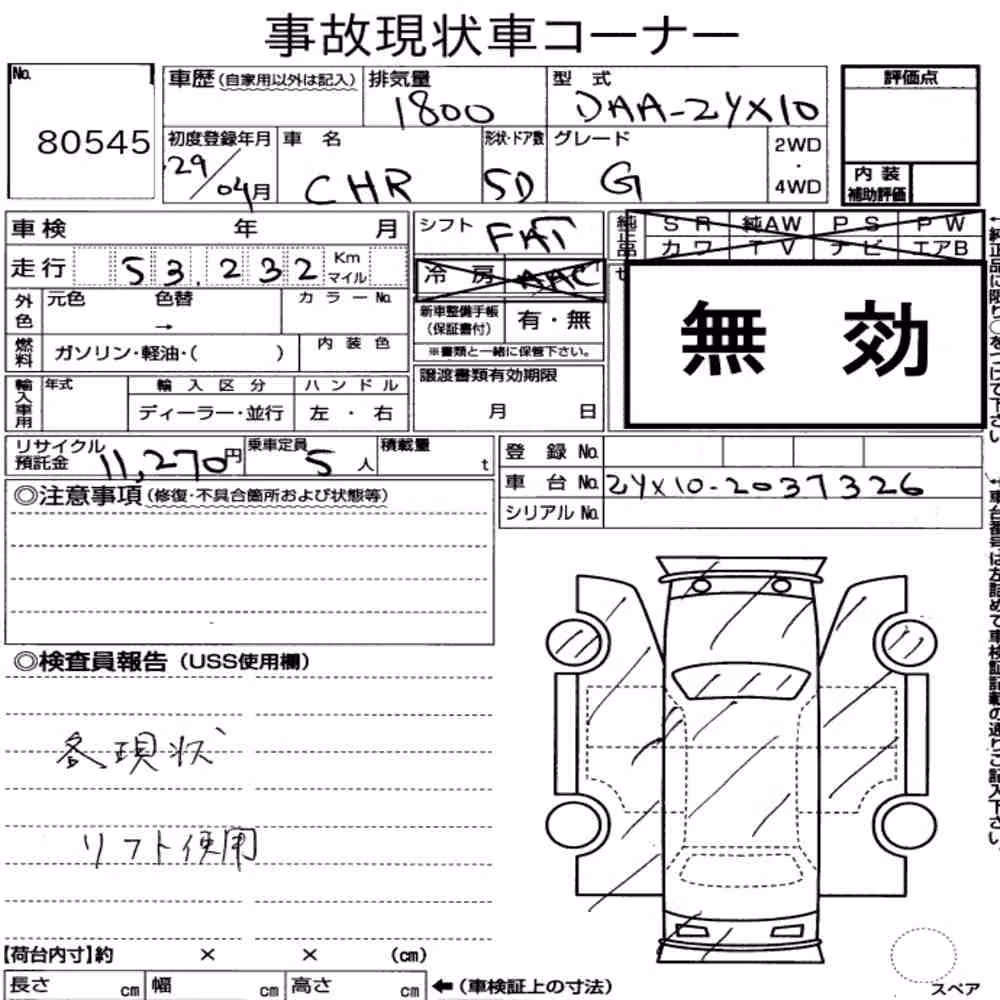 事故現状車コーナー
No.
80545
車歴(自家用以外は記入)
排気量
1800
型 式
DAA-ZYX10
評価点
初度登録年月
29/04月
車 名
CHR
形状・ドア数
5D
グレード
G
2WD
・
4WD
内 装
補助評価
車検 年 月
シフト
FAT
純正品
S R 純AW P S P W
カ ワ T V ナ ビ エアB
走行 53,232 Km マイル
冷 房 AAC
外色
元色 色替 →
カ ラ ー No.
新車整備手帳
(保証書付)
有・無
※書類と一緒に保管下さい。
無 効
燃料
ガソリン・軽油・( )
内 装 色
輸入車用
年式
輸 入 区 分
ディーラー・並行
ハ ン ド ル
左 ・ 右
譲渡書類有効期限
月 日
リサイクル
預託金
11,270円
乗車定員
5人
積載量
t
登 録 No.
車 台 No. ZYX10-2037326
シリアル No.
◎注意事項(修復・不具合箇所および状態等)
◎検査員報告(USS使用欄)
各現状
リフト使用
【荷台内寸】約 × × (cm)
長さ cm 幅 cm 高さ cm ←(車検証上の寸法)
スペア
←純正品に限り○をつけて下さい
車台番号は左詰めで車検証記載の通りご記入下さい。